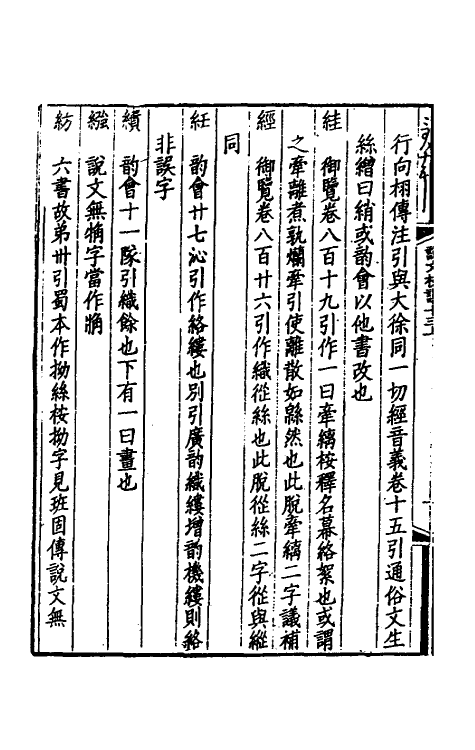 行向栩傳注引與大徐同一切經音義卷十五引通俗文生
絲繒曰綃或韵會以他書改也
絓 御覽卷八百十九引作一曰牽縭桉釋名幕絡絮也或謂
之牽離煮孰爛牽引使離散如緜然也此脫牽縭二字議補
經 御覽卷八百廿六引作織從絲也此脫從絲二字從與縱
同
紝 韵會廿七沁引作絡縷也別引廣韵織縷增韵機縷則絡
非誤字
繢 韵會十一隊引織餘也下有一曰畫也
䋿 說文無㡀字當作㡀
紡 六書故弟卅引蜀本作拗絲桉拗字見班固傳說文無